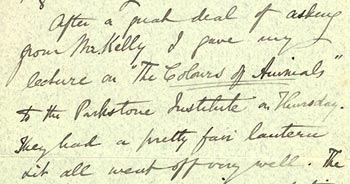 After a great deal of asking
from Mr Kelly I gave my
lecture on "The Colours of Animals"
to the Parkstone Institute on Thursday.
They had a pretty fair lantern
& it all went off very well. The